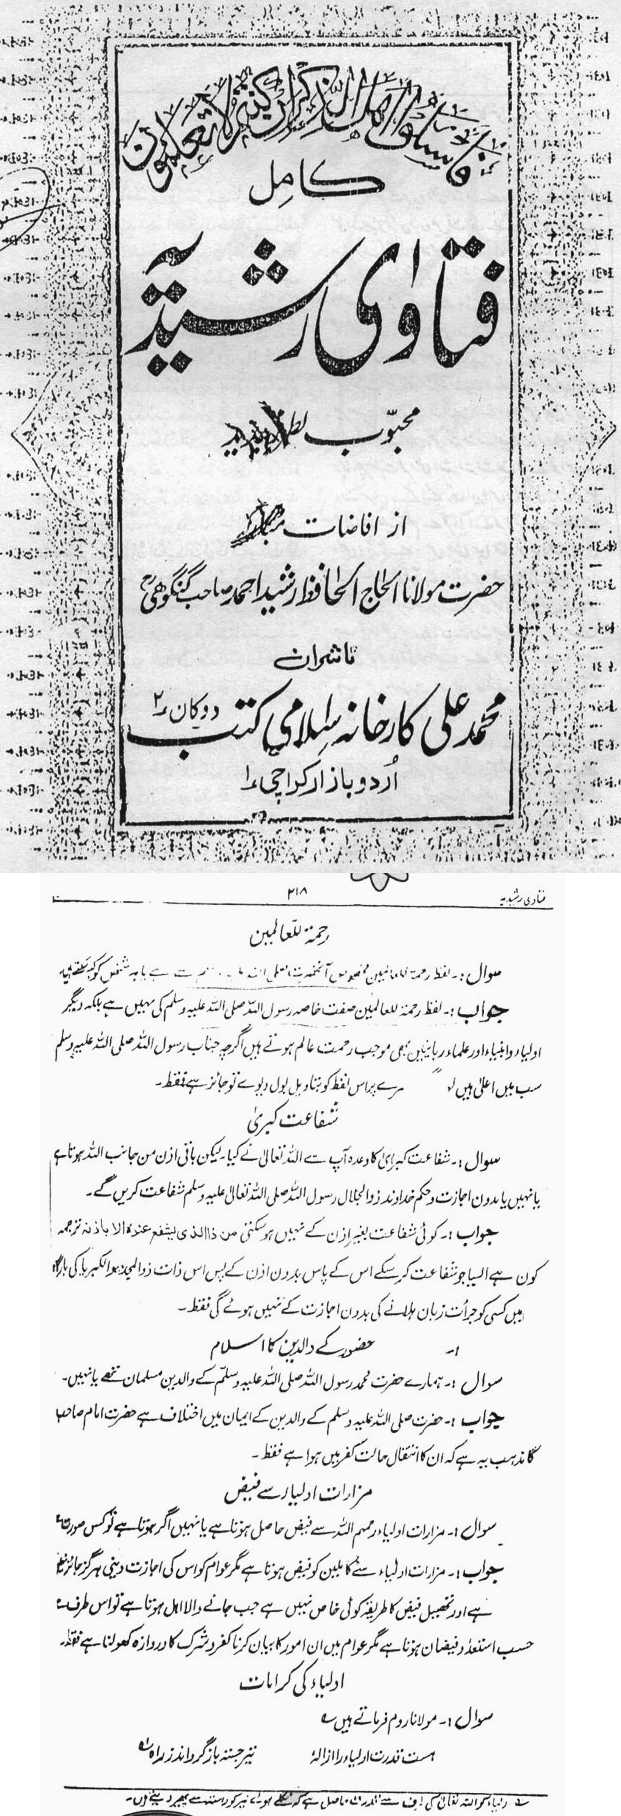 فاسئلوا اهل الذکر ان کنتم لا تعلمون
کامل
فتاویٰ رشیدیہ
محبوب
از افاضات
حضرت مولانا الحاج الحافظ رشید احمد صاحب گنگوھی رح
ناشران
محمد علی کارخانہ اسلامی کتب دوکان ۲
اُردو بازار کراچی ۱
فتاوی رشیدیہ ۲۱۸
رحمۃ للعالمین
سوال :۔ لفظ رحمۃ للعالمین مخصوص آنحضرت صلی اللہ سے ہے یا ہر شخص کو کہہ سکتے ہیں
جواب :۔ لفظ رحمۃ للعالمین صفت خاصہ رسول اللہ صلی اللہ علیہ وسلم کی نہیں ہے بلکہ دیگر
اولیاء و انبیاء اور علماء ربانیین بھی موجب رحمت عالم ہوتے ہیں اگرچہ جناب رسول اللہ صلی اللہ علیہ وسلم
سب میں اعلیٰ ہیں پر اس لفظ کو بتاویل بول دیوے تو جائز ہے فقط۔
شفاعت کبریٰ
سوال :۔ شفاعت کبریٰ کا وعدہ آپ سے اللہ تعالیٰ نے کیا۔ لیکن باقی اذن من جانب اللہ ہوتا ہے
یا نہیں یا بدون اجازت و حکم خداوند ذوالجلال رسول اللہ صلی اللہ تعالیٰ علیہ وسلم شفاعت کریں گے۔
جواب :۔ کوئی شفاعت بغیر اذن کے نہیں ہوسکتی من ذا الذی یشفع عندہ الا باذنہ ترجمہ
کون ہے ایسا جو شفاعت کر سکے اس کے پاس بدون اذن کے پس اس ذات ذوالمجد والکبریا کی بارگاہ
میں کسی کو جرأت زبان ہلانے کی بدون اجازت کے نہیں ہوئے گی فقط۔
۱۔ حضور کے والدین کا اسلام
سوال :۔ ہمارے حضرت محمد رسول اللہ صلی اللہ علیہ وسلم کے والدین مسلمان تھے یا نہیں۔
جواب :۔ حضرت صلی اللہ علیہ وسلم کے والدین کے ایمان میں اختلاف ہے حضرت امام صاحب
کا مذہب یہ ہے کہ ان کا انتقال حالت کفر میں ہوا ہے فقط۔
مزارات اولیاء سے فیض
سوال :۔ مزارات اولیاء رحمہم اللہ سے فیض حاصل ہوتا ہے یا نہیں اگر ہوتا ہے تو کس صورت
جواب :۔ مزارات اولیاء سے کاملین کو فیض ہوتا ہے مگر عوام کو اس کی اجازت دینی ہرگز جائز نہیں
ہے اور تحصیل فیض کا طریقہ کوئی خاص نہیں ہے جب جانے والا اہل ہوتا ہے تو اس طرف سے
حسب استعداد فیضان ہوتا ہے مگر عوام میں ان امور کا بیان کرنا کفر و شرک کا دروازہ کھولنا ہے فقط۔
اولیاء کی کرامات
سوال :۔ مولانا روم فرماتے ہیں
ہست قدرت اولیاء را از الٰہ تیر جستہ باز گردانند ز راہ
اولیاء کو اللہ تعالیٰ کی طرف سے قدرت حاصل ہے کہ نکلے ہوئے تیر کو راستہ سے پھیر دیتے ہیں۔